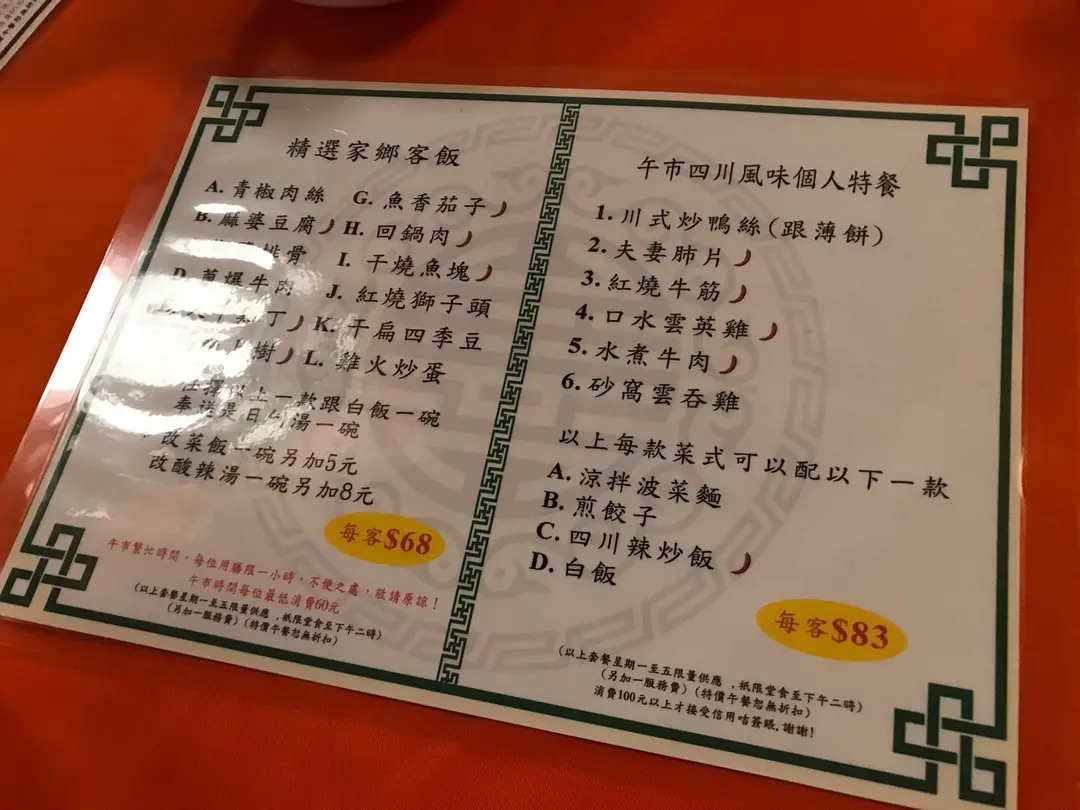 精選家鄉客飯
A. 青椒肉絲
B. 麻婆豆腐
排骨
D. 蔥爆牛肉
丁
樹
G. 魚香茄子
H. 回鍋肉
I. 干燒魚塊
J. 紅燒獅子頭
K. 干扁四季豆
L. 雞火炒蛋
任擇以上一款跟白飯一碗
奉送是日例湯一碗
改菜飯一碗另加5元
改酸辣湯一碗另加8元
每客$68
午市繁忙時間，每位用膳限一小時，不便之處，敬請原諒！
午市時間每位最低消費60元
(以上套餐星期一至五限量供應 ,祇限堂食至下午二時)
(另加一服務費) (特價午餐恕無折扣)
午市四川風味個人特餐
1. 川式炒鴨絲(跟薄餅)
2. 夫妻肺片
3. 紅燒牛筋
4. 口水雲英雞
5. 水煮牛肉
6. 砂窩雲吞雞
以上每款菜式可以配以下一款
A. 涼拌波菜麵
B. 煎餃子
C. 四川辣炒飯
D. 白飯
每客$83
(以上套餐星期一至五限量供應 ,祇限堂食至下午二時)
(另加一服務費) (特價午餐恕無折扣)
消費100元以上才接受信用咭簽賬,謝謝!